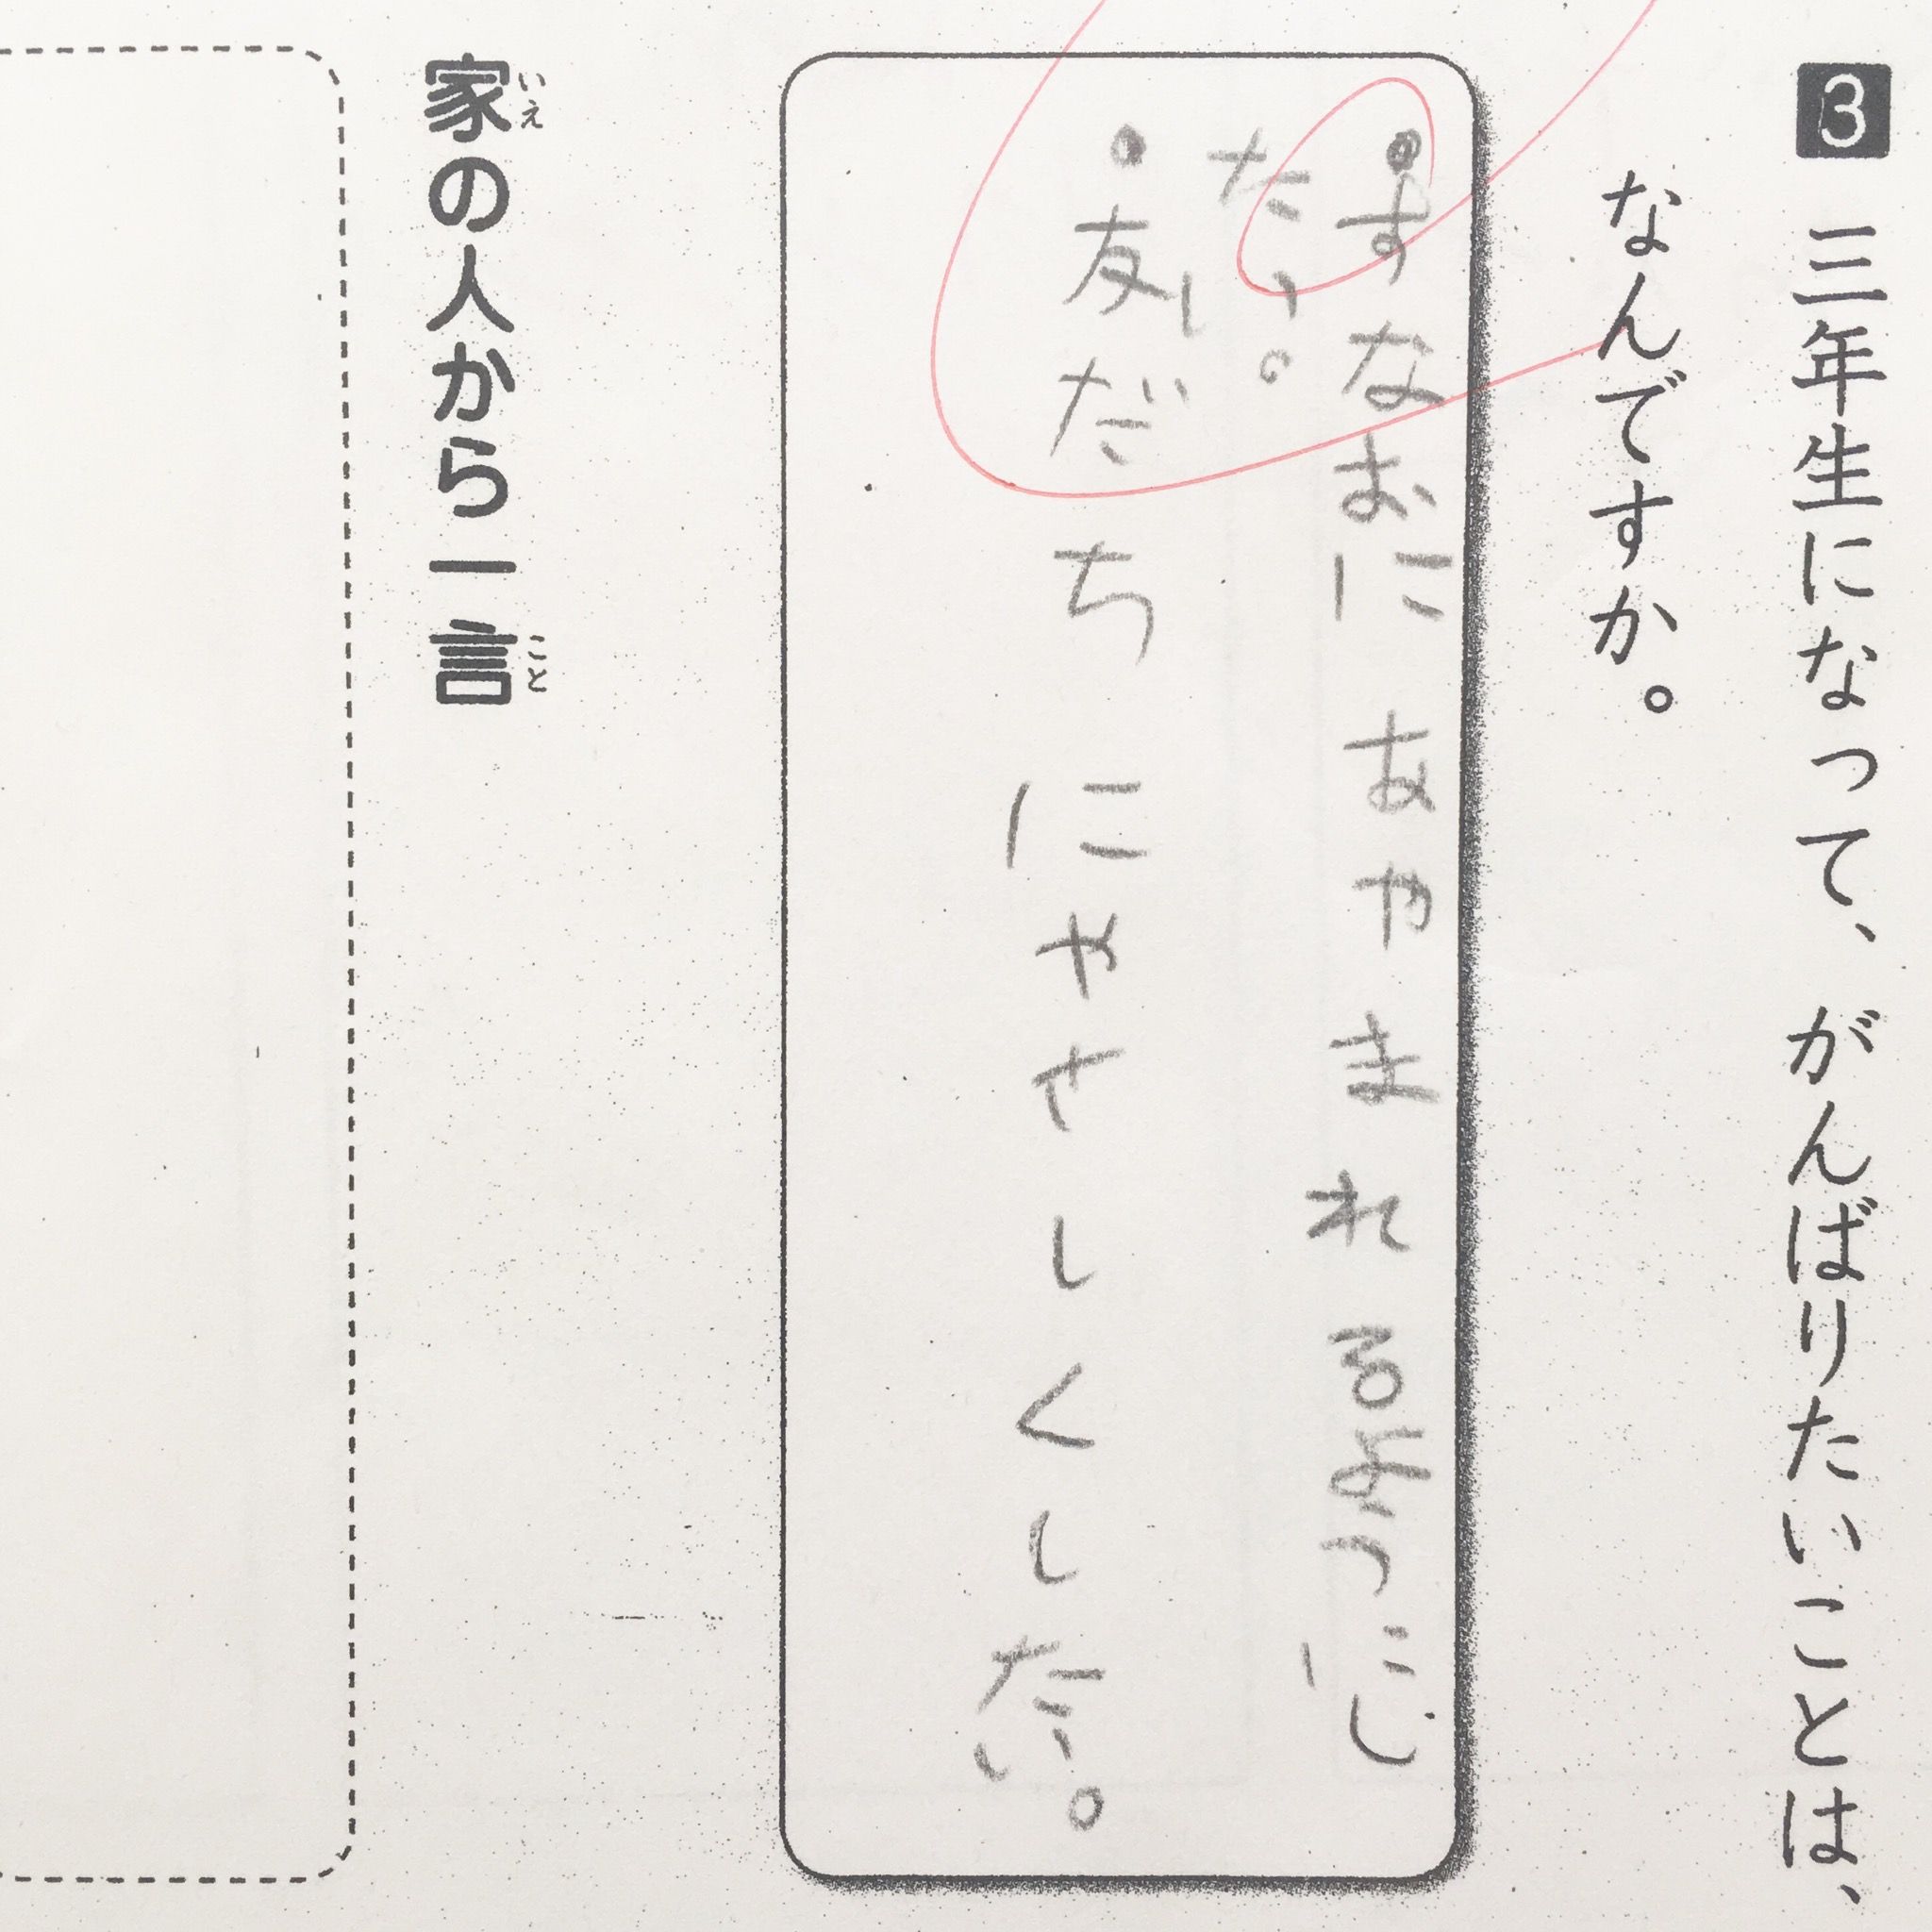 3 三年生になって、がんばりたいことは、
なんですか。
・すなおにあやまれるようにし
たい。
・友だちにやさしくしたい。
家の人から一言
いえ
こと